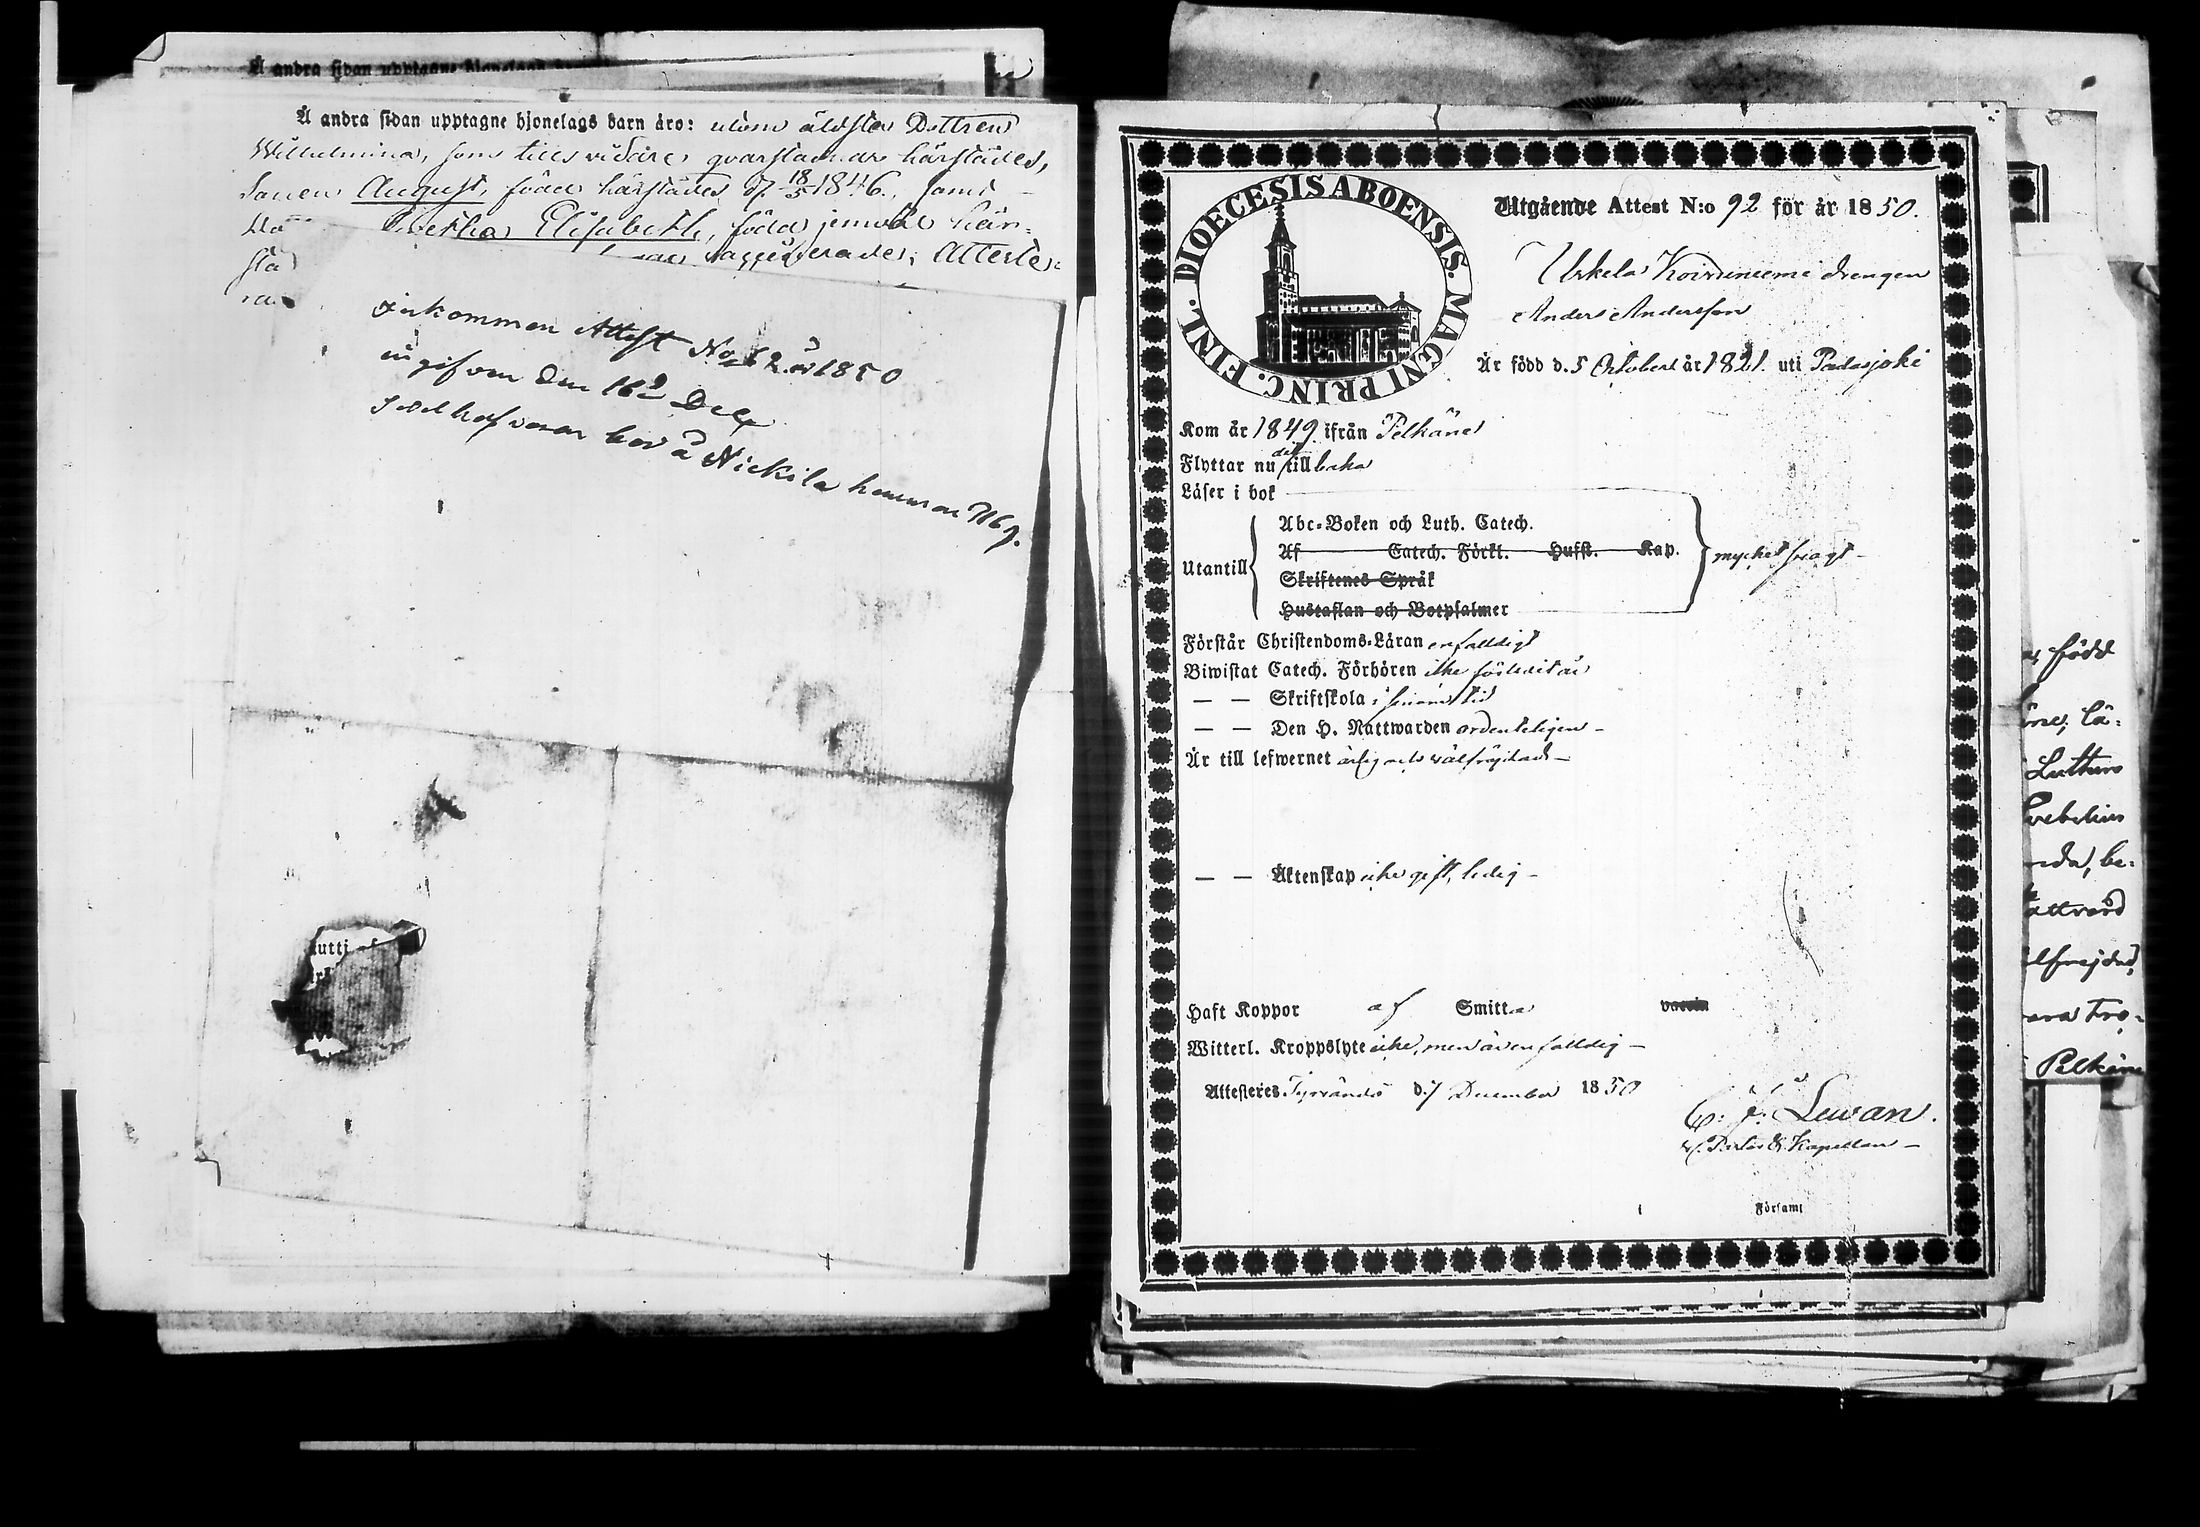 Å andra sidan upptagne hjonelags
Å andra sidan upptagne hjonelags barn äro: utom äldsta Dottren
Wilhelmina, som tills vidare qvarstadnar härstädes,
Sonen August, född härstädes d. 18/5 1846., samt
Elisabeth, född jemväl här-
stä vaccinerade; Atteste-
ra
Inkommen Attest No 12 år 1850
ingifven den 16 Dec
innehafvaren bor å Nickila hemman
DIOECESIS ABOENSIS. MAGNI PRINC. FINL.
Utgående Attest N:o 92 för år 1850.
Urkela Koivuniemi drengen
Anders Andersson
Är född d. 5 October år 1821. uti Padasjoki
Kom år 1849 ifrån Pelkäne
Flyttar nu dit tillbaka
Läser i bok
Utantill
Abc-Boken och Luth. Catech.
Af Catech. Förkl. Husst. Kap.
Skriftenes Språk
Hustaflan och Botpsalmer
mycket svagt
Förstår Christendoms-Läran enfaldigt
Biwistat Catech. Förhören icke förledit år
— — Skriftskola i sinom tid
— — Den H. Nattwarden ordenteligen —
Är till lefwernet ärlig och välfrejdad —
— — Äktenskap icke gift, ledig —
Haft Koppor af Smitta vaccin
Witterl. Kroppslyte icke, men är enfalldig —
Attesteres Tyrväntö d. 7 December 1850
C. J. Lewan.
Kapellan —
Församl
född
Luthers
Svebelius
Pelkäne